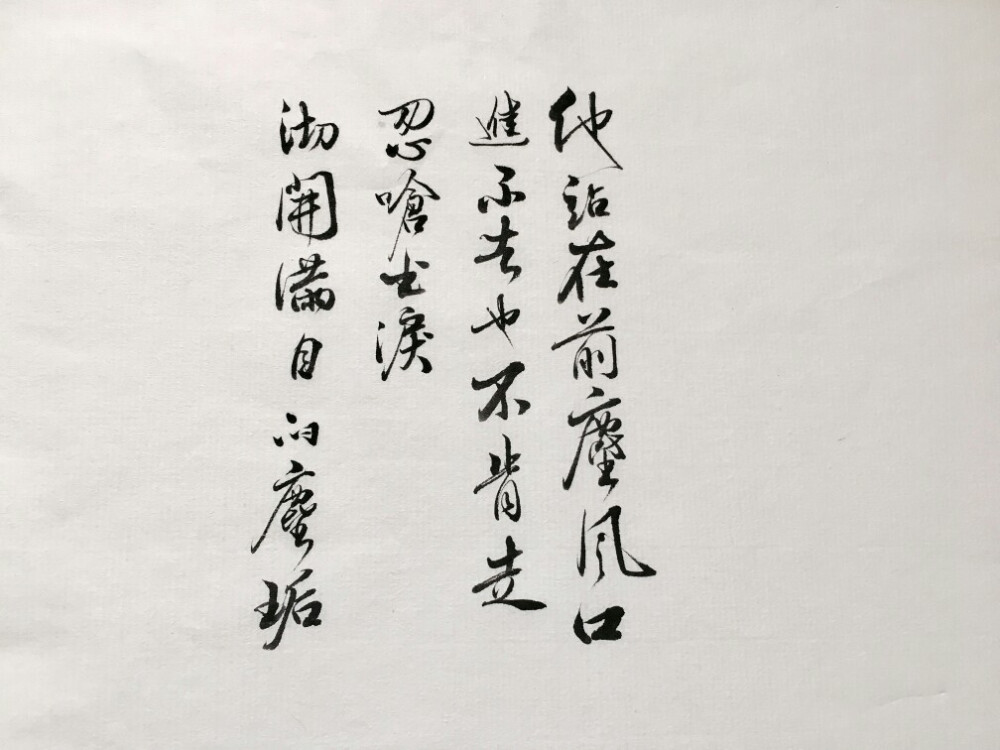 他站在前塵风口
進不去也不肯走
忍嗆出淚
沏開滿目的塵垢